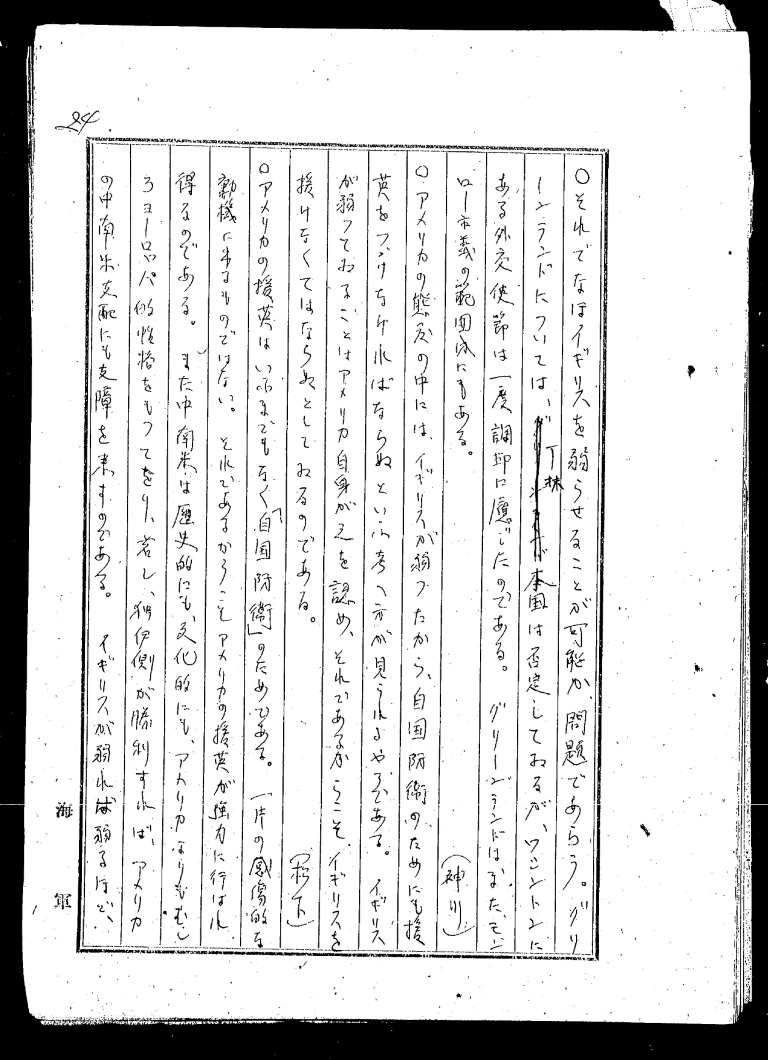 24
○それでなほイギリスを弱らせることが可能か、問題であらう。グリ
ーンランドについては、丁抹本国は否定しておるが、ワシントンに
ある外交使節は一度調印に應じたのである。グリーンランドはまた、モン
ロー主義の範囲内にもある。
（神川）
○アメリカの態度の中には、イギリスが弱つたから、自国防衛のためにも援
英をつゞけなければならぬといふ考へ方が見られるやうである。イギリス
が弱つておることはアメリカ自身が之を認め、それであるからこそ、イギリスを
援けなくてはならぬとしておるのである。
（松下）
○アメリカの援英はいふまでもなく「自国防衛」のためである。一片の感傷的な
動機に出るものではない。それであるからこそアメリカの援英が強力に行はれ
得るのである。また中南米は歴史的にも、文化的にも、アメリカよりもむし
ろヨーロッパ的性格をもつてをり、若し、独伊側が勝利すれば、アメリカ
の中南米支配にも支障を来すのである。イギリスが弱れば弱るほど、
海軍